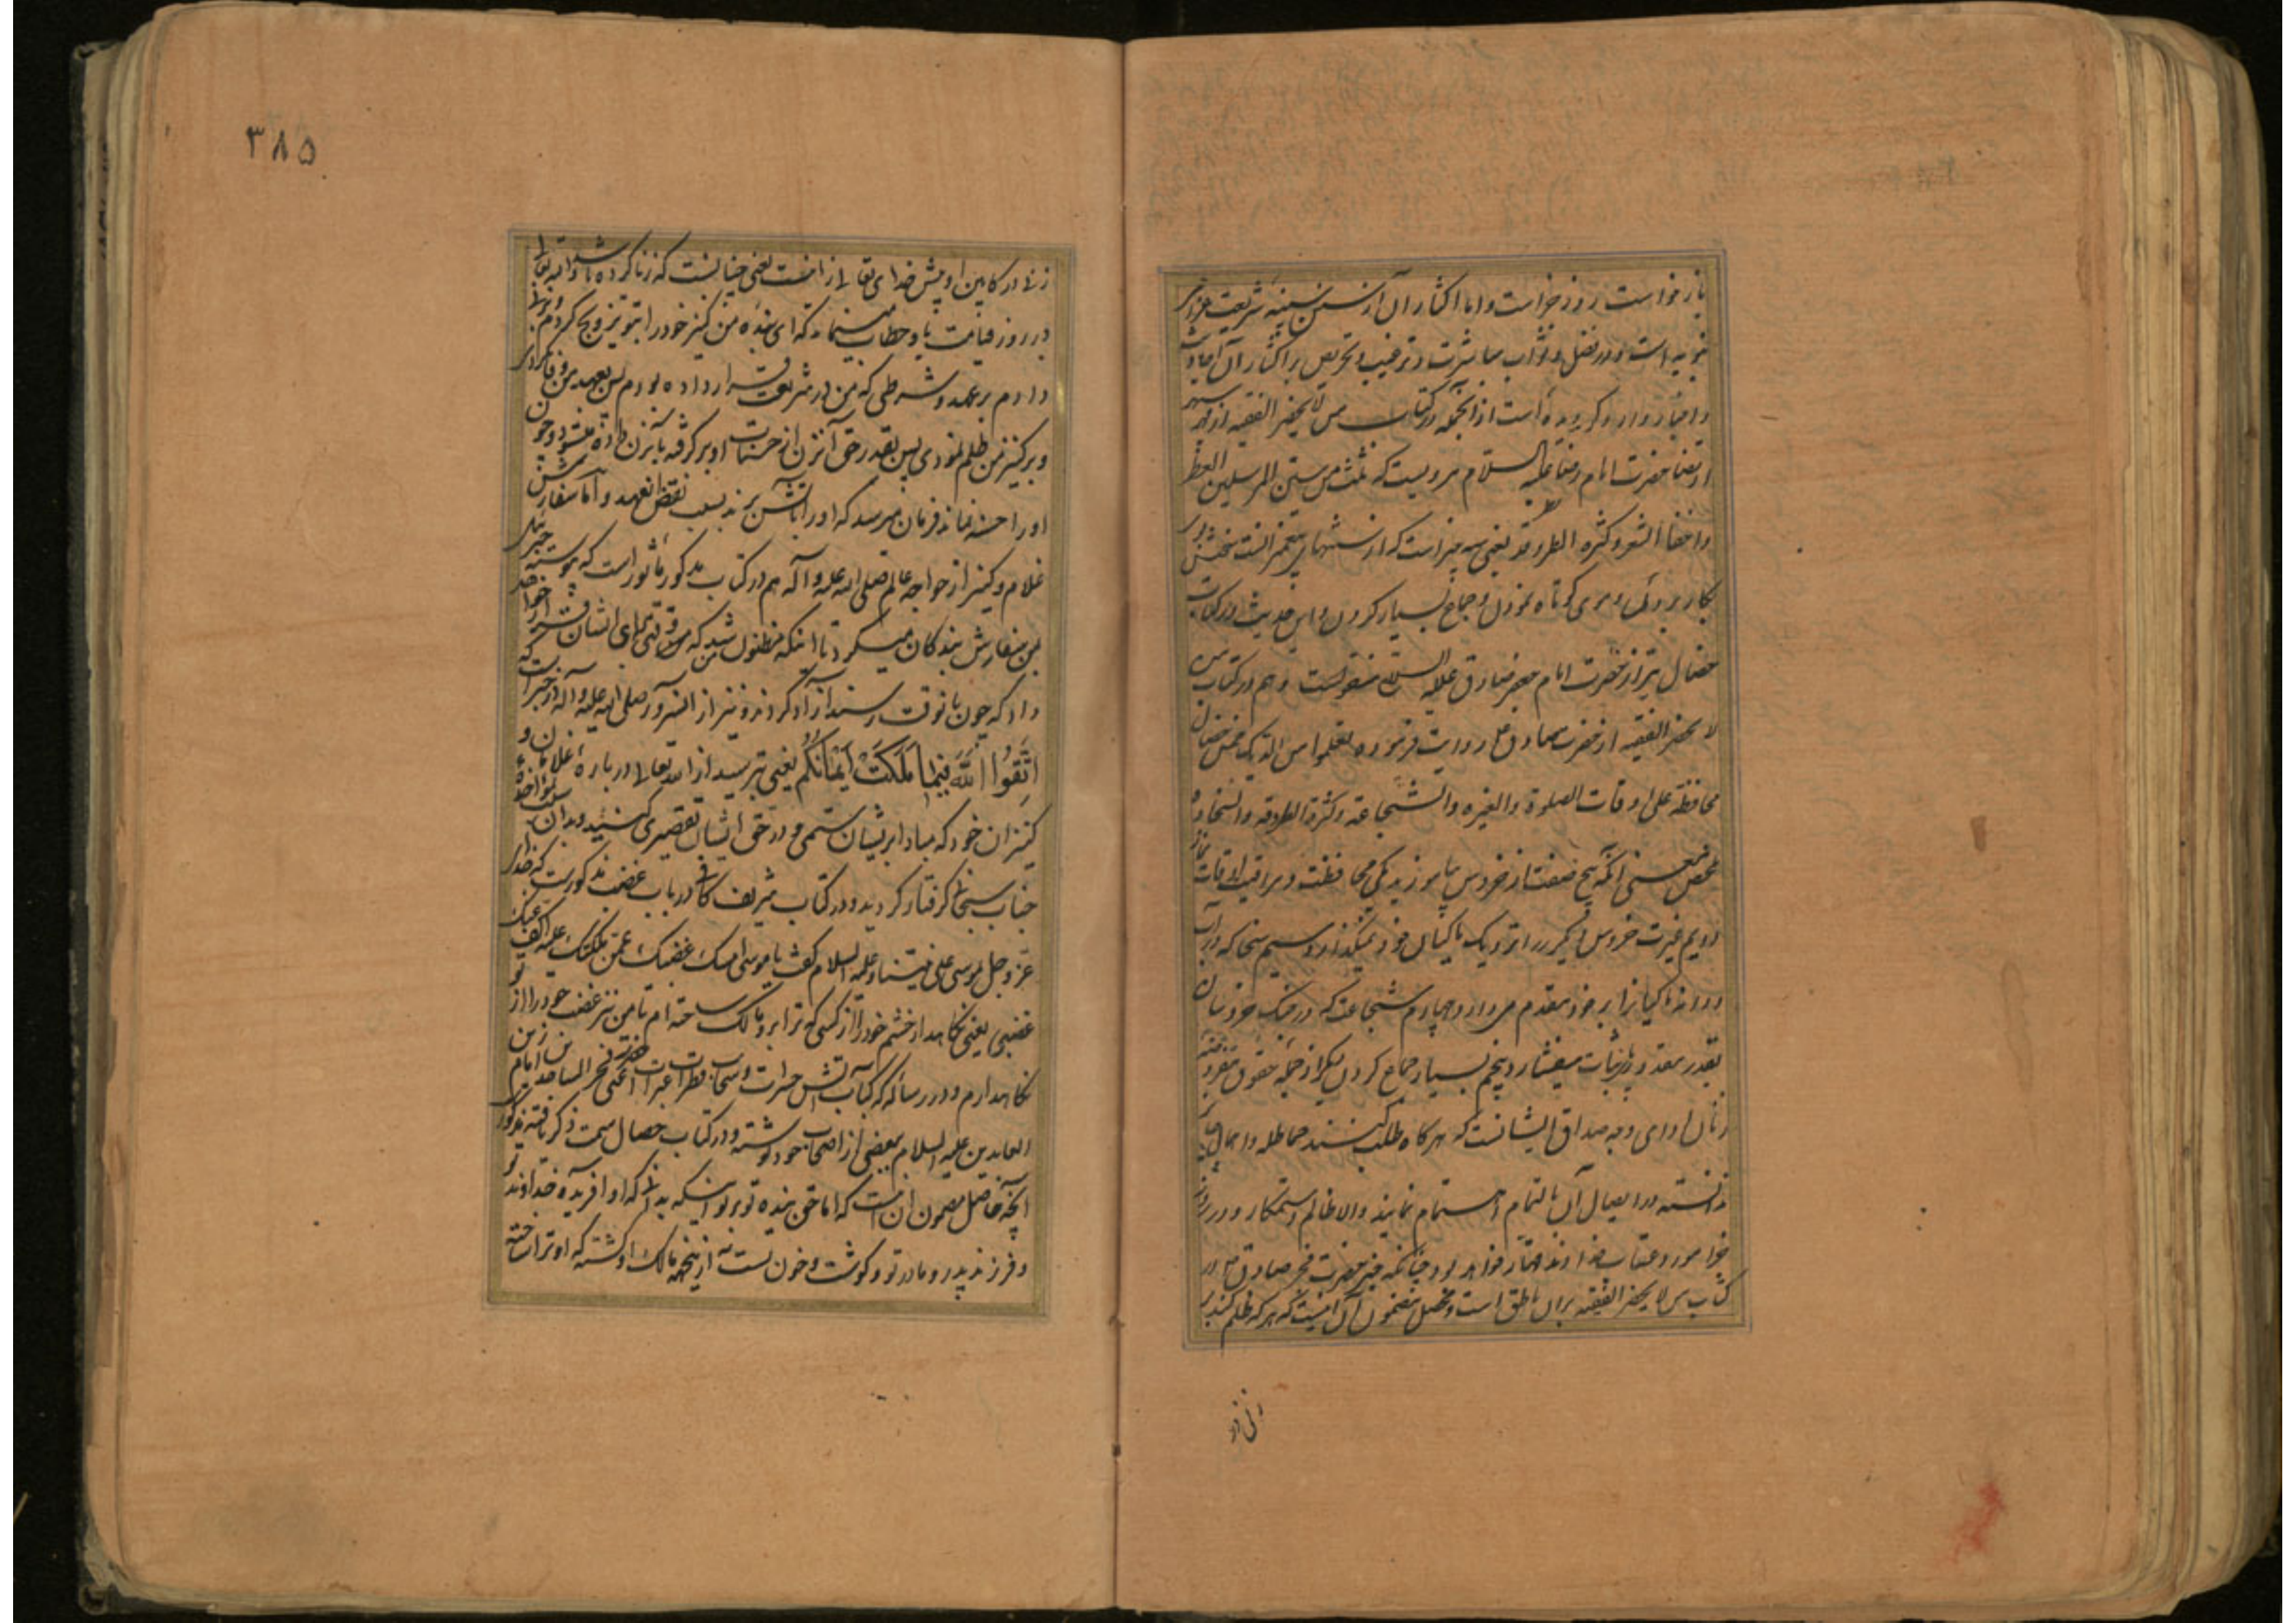 باز خواست روز جزاست و اما اکثار آن از سنن سنیه شریعت غرای
نبویه است و در فضل و ثواب مباشرت و ترغیب و تحریص بر اکثار آن احادیث
و اخبار وارد گردیده است از آنجمله در کتاب من لا یحضر الفقیه از
ارتضا حضرت امام رضا علیه السلام مرویست که ثلث من سنن المرسلین العطر
و اخفاء الشعر و کثرة الطروقة یعنی سه چیز است که از سنتهای پیغمبرانست بوی خوش
بکار بردن و موی کوتاه نمودن و جماع بسیار کردن و این حدیث در کتاب
خصال نیز از حضرت امام جعفر صادق علیه السلام منقولست و هم در کتاب من
لا یحضر الفقیه از حضرت صادق ع روایت فرموده تعلموا من الدیک خمس خصال
محافظة علی اوقات الصلوة والغیره والشجاعة وکثرة الطروقه والسخاوه
محصل معنی آنکه پنج صفت از خروس بیاموزید یکی محافظت و مراقبت اوقات نماز
دویم غیرت خروس دیگر را نزدیک ماکیان خود نمیگذارد سیم سخا که در آب
و دانه ماکیانرا بر خود مقدم میدارد چهارم شجاعت که در جنگ خروسان
بقدر مقدور پای ثبات میفشارد پنجم بسیار جماع کردن دیگر از جمله حقوق مفروضه
زنان ادای وجه صداق ایشانست که هرگاه طلب کنند مماطله و اهمال
ندانسته در ایصال آن بالتمام اهتمام نمایند والا ظالم و ستمکار و در روز
جزا مورد عتاب خداوند قهار خواهد بود چنانکه خبر حضرت صادق ع در
کتاب من لا یحضر الفقیه بران ناطق است و محصل مضمون آن اینست که هر که ظلم کند بر
زنی در
۳۸۵
زنی در کابین او پیش خدای تعالی زانیست یعنی چنانست که زنا کرده باشد و الله تعالی
در روز قیامت باو خطاب مینماید که ای بنده من کنیز خود را بتو تزویج کردم
دادم بر عهد و شرطی که من در شریعت قرار داده بودم پس بعهد من وفا نکردی
و بر کنیز من ظلم نمودی پس بقدر حق آنزن از حسنات او بر گرفته بآنزن داده میشود و چون
او را حسنه نماند فرمان میرسد که او را بآتش برند بسبب نقض عهد و اما سفارش
غلام و کنیز از خواجه عالم صلی الله علیه و آله هم در کتاب مذکور مأثور است که پیوسته جبرئیل
بمن سفارش بندگان میکرد تا اینکه مظنون من شد که وقتی برای ایشان قرار خواهد
داد که چون بانوقت رسند آزاد گردند و نیز از آنسرور صلی الله علیه و آله در خبر است که
اتَّقُوا اللَّهَ فِیمَا مَلَکَتْ أَیْمَانُکُمْ یعنی بترسید از الله تعالی در باره غلامان و
کنیزان خود که مبادا بر ایشان ستمی و در حق ایشان تقصیری کنید و بدان سبب بمؤاخذه
جناب سبحانی گرفتار گردید و در کتاب شریف کافی در باب غضب مذکورست که خدای
عز و جل بموسی علی نبینا و علیه السلام گفت یا موسی امسک غضبک عمن ملکتک علیه اکف عنک
غضبی یعنی نگاهدار خشم خود را از کسی که ترا برو مالک ساخته ام تا من نیز غضب خود را از تو
نگاهدارم و در رساله که
العابدین علیه السلام ببعضی از اصحاب خود نوشته و در کتاب خصال سمت ذکر یافته مذکور
آنچه حاصل مضمون آن اینست که اما حق بنده تو بر تو اینست که بدانی که او آفریده خداوند تو
و فرزند پدر و مادر تو و گوشت و خون تست نه از اینجهة مالک او گشته که او ترا ساخته